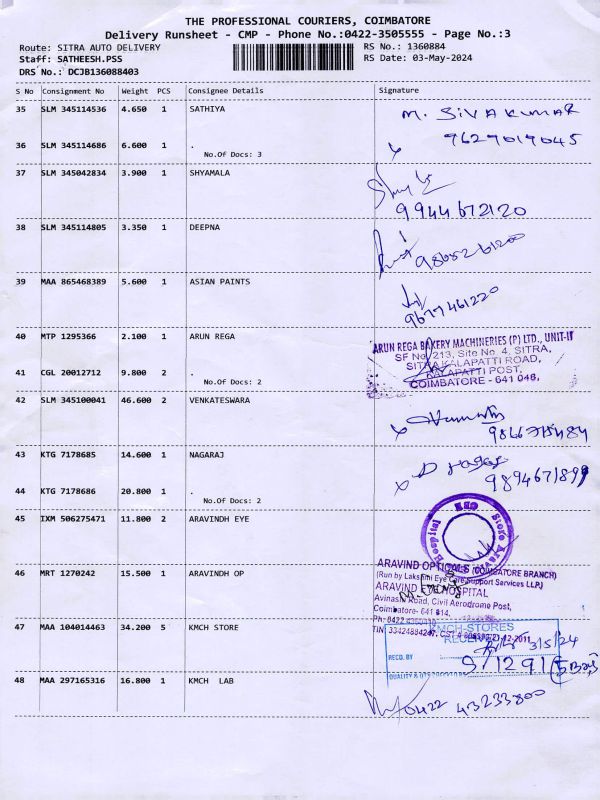 THE PROFESSIONAL COURIERS, COIMBATORE
Delivery Runsheet - CMP - Phone No.:0422-3505555 - Page No.:3
Route: SITRA AUTO DELIVERY RS No.: 1360884
Staff: SATHEESH.PSS RS Date: 03-May-2024
DRS No.: DCJB136088403
S No Consignment No Weight PCS Consignee Details Signature
35 SLM 345114536 4.650 1 SATHIYA M. SIVAKUMAR
9629019045
36 SLM 345114686 6.600 1 .
No.Of Docs: 3
37 SLM 345042834 3.900 1 SHYAMALA
9944672120
38 SLM 345114805 3.350 1 DEEPNA
39 MAA 865468389 5.600 1 ASIAN PAINTS
9677461220
40 MTP 1295366 2.100 1 ARUN REGA
ARUN REGA BAKERY MACHINERIES (P) LTD., UNIT-II
SF No. 213, Site No. 4, SITRA,
SITRA KALAPATTI ROAD,
KALAPATTI POST,
COIMBATORE - 641 048.
41 CGL 20012712 9.800 2 .
No.Of Docs: 2
42 SLM 345100041 46.600 2 VENKATESWARA
43 KTG 7178685 14.600 1 NAGARAJ
44 KTG 7178686 20.800 1 .
No.Of Docs: 2
45 IXM 506275471 11.800 2 ARAVINDH EYE
Hospital Store
46 MRT 1270242 15.500 1 ARAVINDH OP
ARAVIND OPTICALS (COIMBATORE BRANCH)
(Run by Lakshmi Eye Care Support Services LLP.)
ARAVIND EYE HOSPITAL
Avinashi Road, Civil Aerodrome Post,
Coimbatore- 641 014.
47 MAA 104014463 34.200 5 KMCH STORE
KMCH-STORES
RECEIVED
3/5/24
RECD. BY
S/1291
48 MAA 297165316 16.800 1 KMCH LAB
0422 43233800